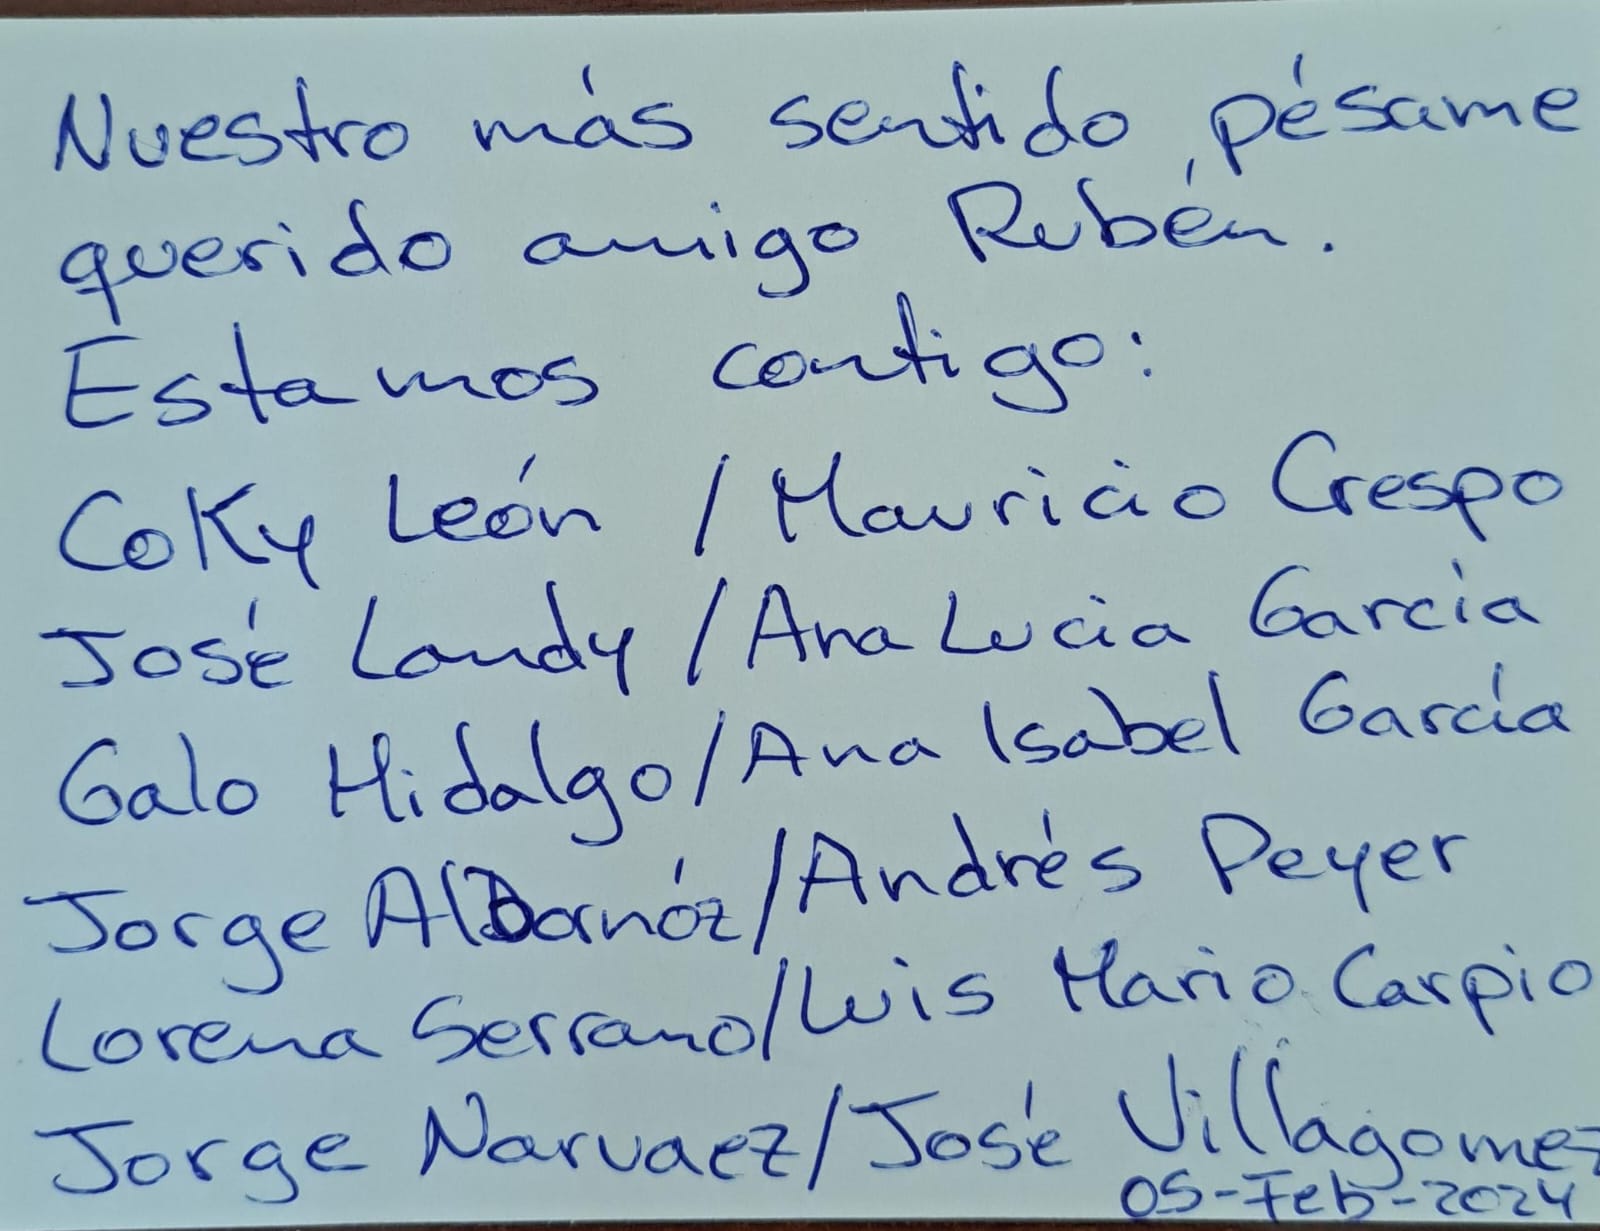 Nuestro más sentido pésame
querido amigo Rubén.
Estamos contigo:
CoKy León / Mauricio Crespo
José Landy / Ana Lucia García
Galo Hidalgo / Ana Isabel García
Jorge Albornóz / Andrés Peyer
Lorena Serrano / Luis Mario Carpio
Jorge Narvaez / José Villagomez
05-Feb-2024